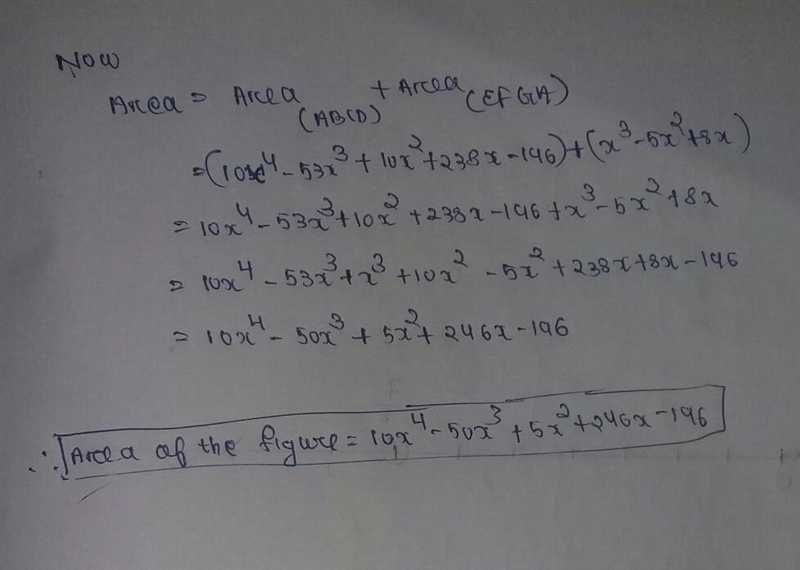 Now
Area = Area (ABCD) + Area (EFGA)
= (10x⁴ - 53x³ + 10x² + 238x - 196) + (x³ - 5x² + 8x)
= 10x⁴ - 53x³ + 10x² + 238x - 196 + x³ - 5x² + 8x
= 10x⁴ - 53x³ + x³ + 10x² - 5x² + 238x + 8x - 196
= 10x⁴ - 50x³ + 5x² + 246x - 196
∴ Area of the figure = 10x⁴ - 50x³ + 5x² + 246x - 196